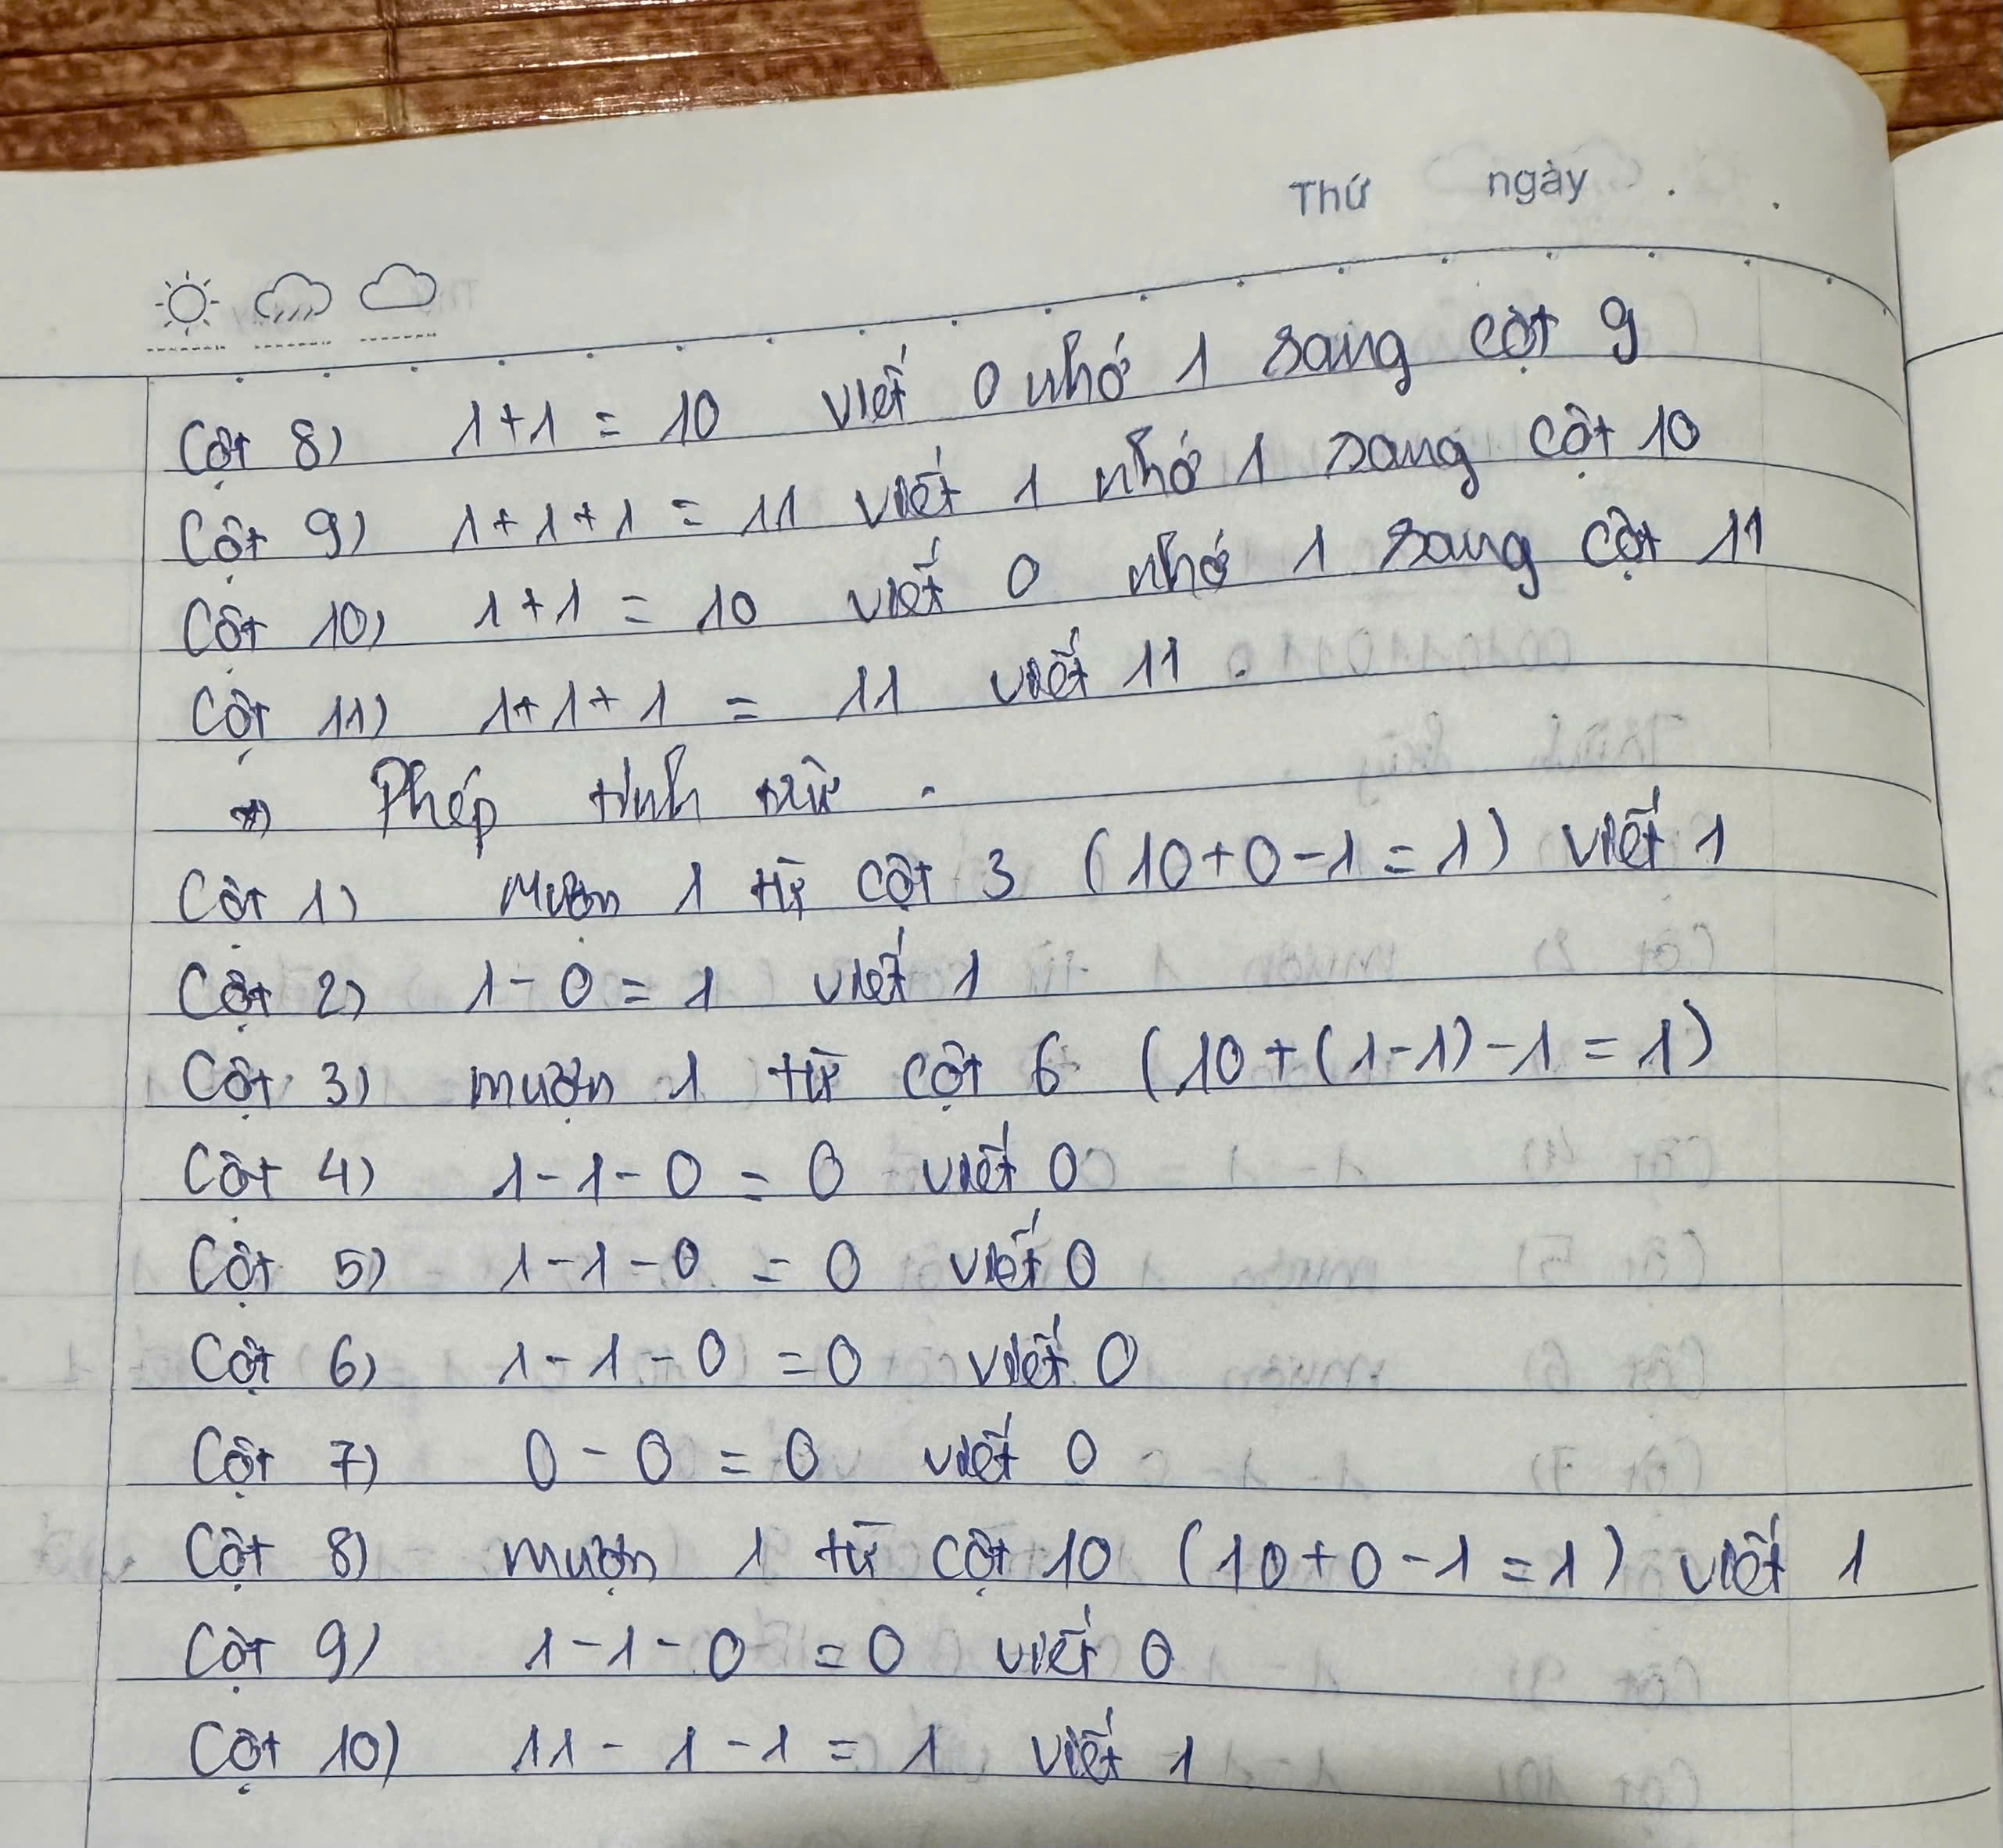 Thứ ngày
Cột 8) 1+1 = 10 viết 0 nhớ 1 sang cột 9
Cột 9) 1+1+1 = 11 viết 1 nhớ 1 sang cột 10
Cột 10) 1+1 = 10 viết 0 nhớ 1 sang cột 11
Cột 11) 1+1+1 = 11 viết 11.
*) Phép tính trừ.
Cột 1) Mượn 1 từ cột 3 (10+0-1=1) viết 1
Cột 2) 1-0=1 viết 1
Cột 3) mượn 1 từ cột 6 (10+(1-1)-1=1)
Cột 4) 1-1-0 = 0 viết 0
Cột 5) 1-1-0 = 0 viết 0
Cột 6) 1-1-0 =0 viết 0
Cột 7) 0-0=0 viết 0
Cột 8) mượn 1 từ cột 10 (10+0-1=1) viết 1
Cột 9) 1-1-0 =0 viết 0
Cột 10) 11-1-1 = 1 viết 1